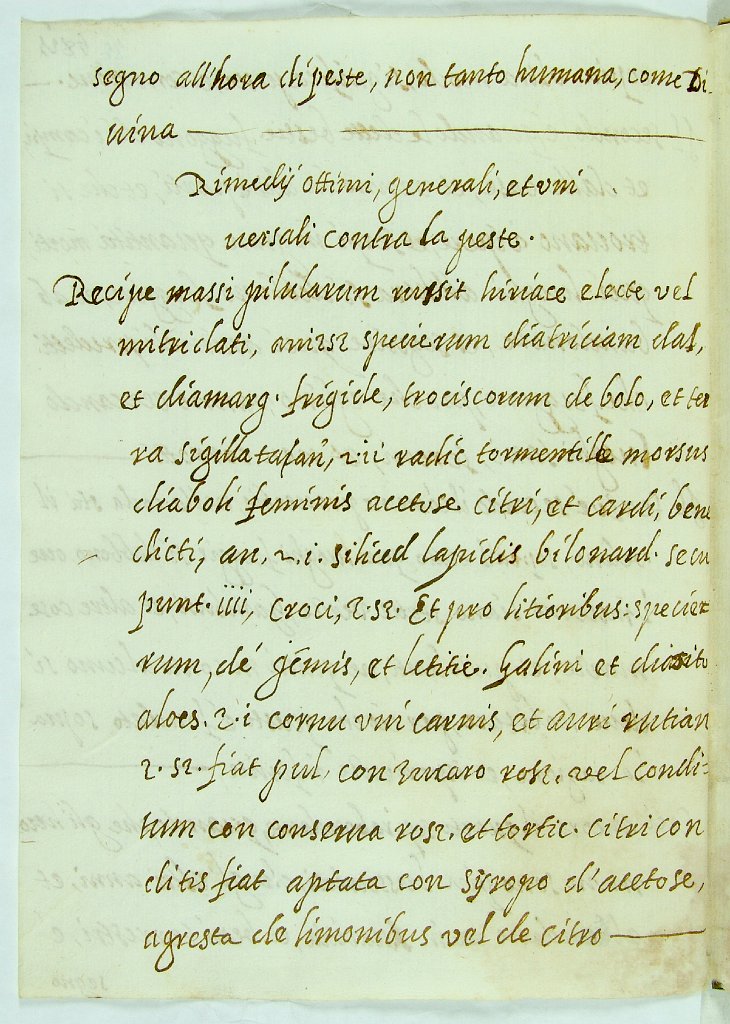 segno all'hora di peste, non tanto humana, come Di-
uina
Rimedij ottimi, generali, et vni
uersali contra la peste.
Recipe massi pilularum russit hiriace electe vel
mitridati, specierum diatriciam dal,
et diamarg. frigide, trociscorum de bolo, et ter
ra sigillata, radic tormentille morsus
diaboli feminis acetose citri, et cardi, bene
dicti, an, 2.i. siliced lapidis bilonard. secu
punt. iiii, croci, 2.s2. Et pro litioribus: specie
rum, dé gemis, et letitie. Galini et
aloes. 2.i cornu vni carnis, et auri rutian
2.s2. fiat pul, con zucaro ros2. vel condi-
tum con conserua ros2. et tortic. citri con
ditis fiat aptata con syropo d'acetose,
agresta de limonibus vel de citro